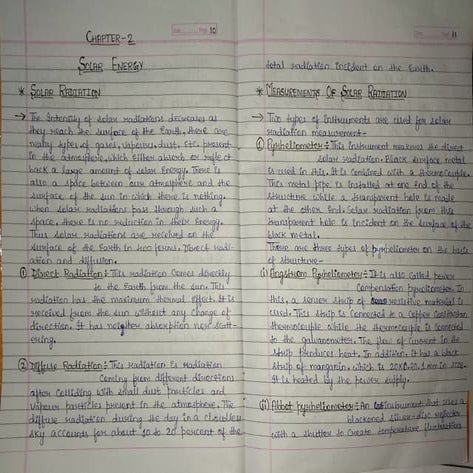 Page 10
CHAPTER-2
SOLAR ENERGY
* SOLAR RADIATION
→ The Intensity of solar radiations decreases as
they reach the surface of the Earth, there are
many types of gases, vapours, dust, etc. present
in the atmosphere, which either absorb or reflect
back a large amount of solar Energy. There is
also a space between our atmosphere and the
surface of the sun in which there is nothing.
When solar radiation pass through such a
space, there is no reduction in their Energy.
Thus solar radiations are received on the
surface of the Earth in two forms, Direct radi-
ation and diffusion.
① Direct Radiation: This radiation comes directly
to the Earth from the sun. This
radiation has the maximum thermal effect. It is
received from the sun without any change of
direction. It has neither absorption nor scatt-
ering.
② Diffuse Radiation: This radiation is radiation
coming from different directions
after colliding with small dust particles and
vapour particles present in the atmosphere. The
diffuse radiation during the day in a cloudless
sky accounts for about 10 to 20 percent of the
Page 11
total radiation incident on the Earth.
* MEASUREMENTS OF SOLAR RADIATION
→ Two types of instruments are used for solar
radiation measurement-
① Pyrheliometer: This instrument measures the direct
solar radiation. Black surface metal
is used in this. It is combined with a thermocouple.
This metal pipe is installed at one end of the
structure while a transparent hole is made
at the other end. Solar radiation from this
transparent hole is incident on the surface of the
black metal.
There are three types of pyrheliometer on the basis
of structure-
(i) Angstrom Pyrheliometer: It is also called power
compensation pyrheliometer. In
this, a sensor strip of resistive material is
used. This strip is connected to a copper constantan
thermocouple while the thermocouple is connected
to the galvanometer. The flow of current in the
strip produces heat. In addition, it has a black
strip of manganin, which is 20X0.20.1 mm in size.
It is heated by the power supply.
(ii) Abbot pyrheliometer: An instrument that uses a
blackened silver-disc
with a shutter to create temperature fluctuations